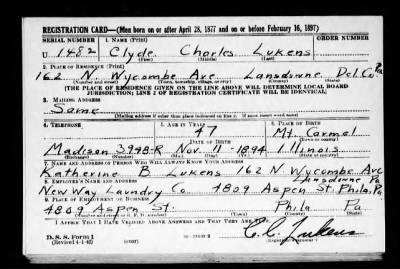 REGISTRATION CARD—(Men born on or after April 28, 1877 and on or before February 16, 1897)
SERIAL NUMBER 1. NAME (Print)
U 1482 Clyde Charles Lukens
(First) (Middle) (Last)
2. PLACE OF RESIDENCE (Print)
162 N. Wycombe Ave Lansdowne Del. Co. Pa
(Number and street) (Town, township, village, or city) (County) (State)
[THE PLACE OF RESIDENCE GIVEN ON THE LINE ABOVE WILL DETERMINE LOCAL BOARD
JURISDICTION; LINE 2 OF REGISTRATION CERTIFICATE WILL BE IDENTICAL]
3. MAILING ADDRESS
Same
(Mailing address if other than place indicated on line 2. If same insert word same)
4. TELEPHONE 5. AGE IN YEARS 6. PLACE OF BIRTH
47 Mt. Carmel
DATE OF BIRTH
Madison 3948-R Nov. 11 - 1894 Illinois
(Exchange) (Number) (Mo.) (Day) (Yr.) (State or country)
7. NAME AND ADDRESS OF PERSON WHO WILL ALWAYS KNOW YOUR ADDRESS
Katherine B Lukens 162 N. Wycombe Ave
Lansdowne Pa
8. EMPLOYER'S NAME AND ADDRESS
New Way Laundry Co. 4809 Aspen St. Phila. Pa.
9. PLACE OF EMPLOYMENT OR BUSINESS
4809 Aspen St. Phila Pa
(Number and street or R. F. D. number) (Town) (County) (State)
I AFFIRM THAT I HAVE VERIFIED ABOVE ANSWERS AND THAT THEY ARE TRUE.
D. S. S. Form 1
(Revised 4-1-42) (over)
C. C. Lukens
(Registrant's signature)